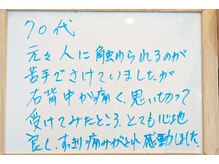 70代
元々人に触れられるのが
苦手でさけていましたが
右背中が痛く、思い切って
受けてみたところ、とても心地
良く、すぐ痛みがとれ感動しました